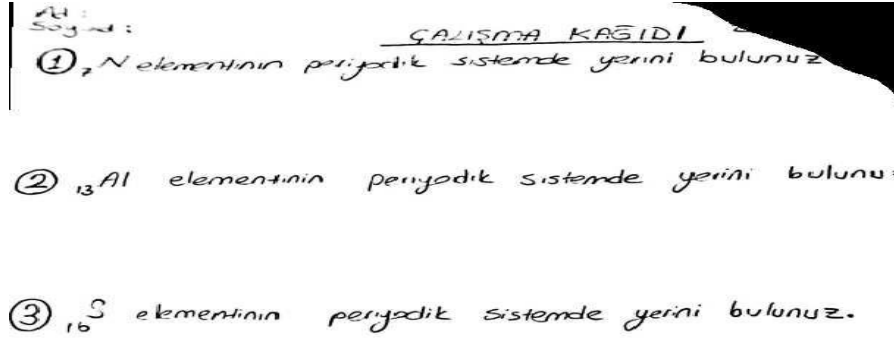 Ad :
Soyad :
ÇALIŞMA KAĞIDI
① ₇N elementinin periyodik sistemde yerini bulunuz
② ₁₃Al elementinin periyodik sistemde yerini bulunu
③ ₁₆S elementinin periyodik sistemde yerini bulunuz.